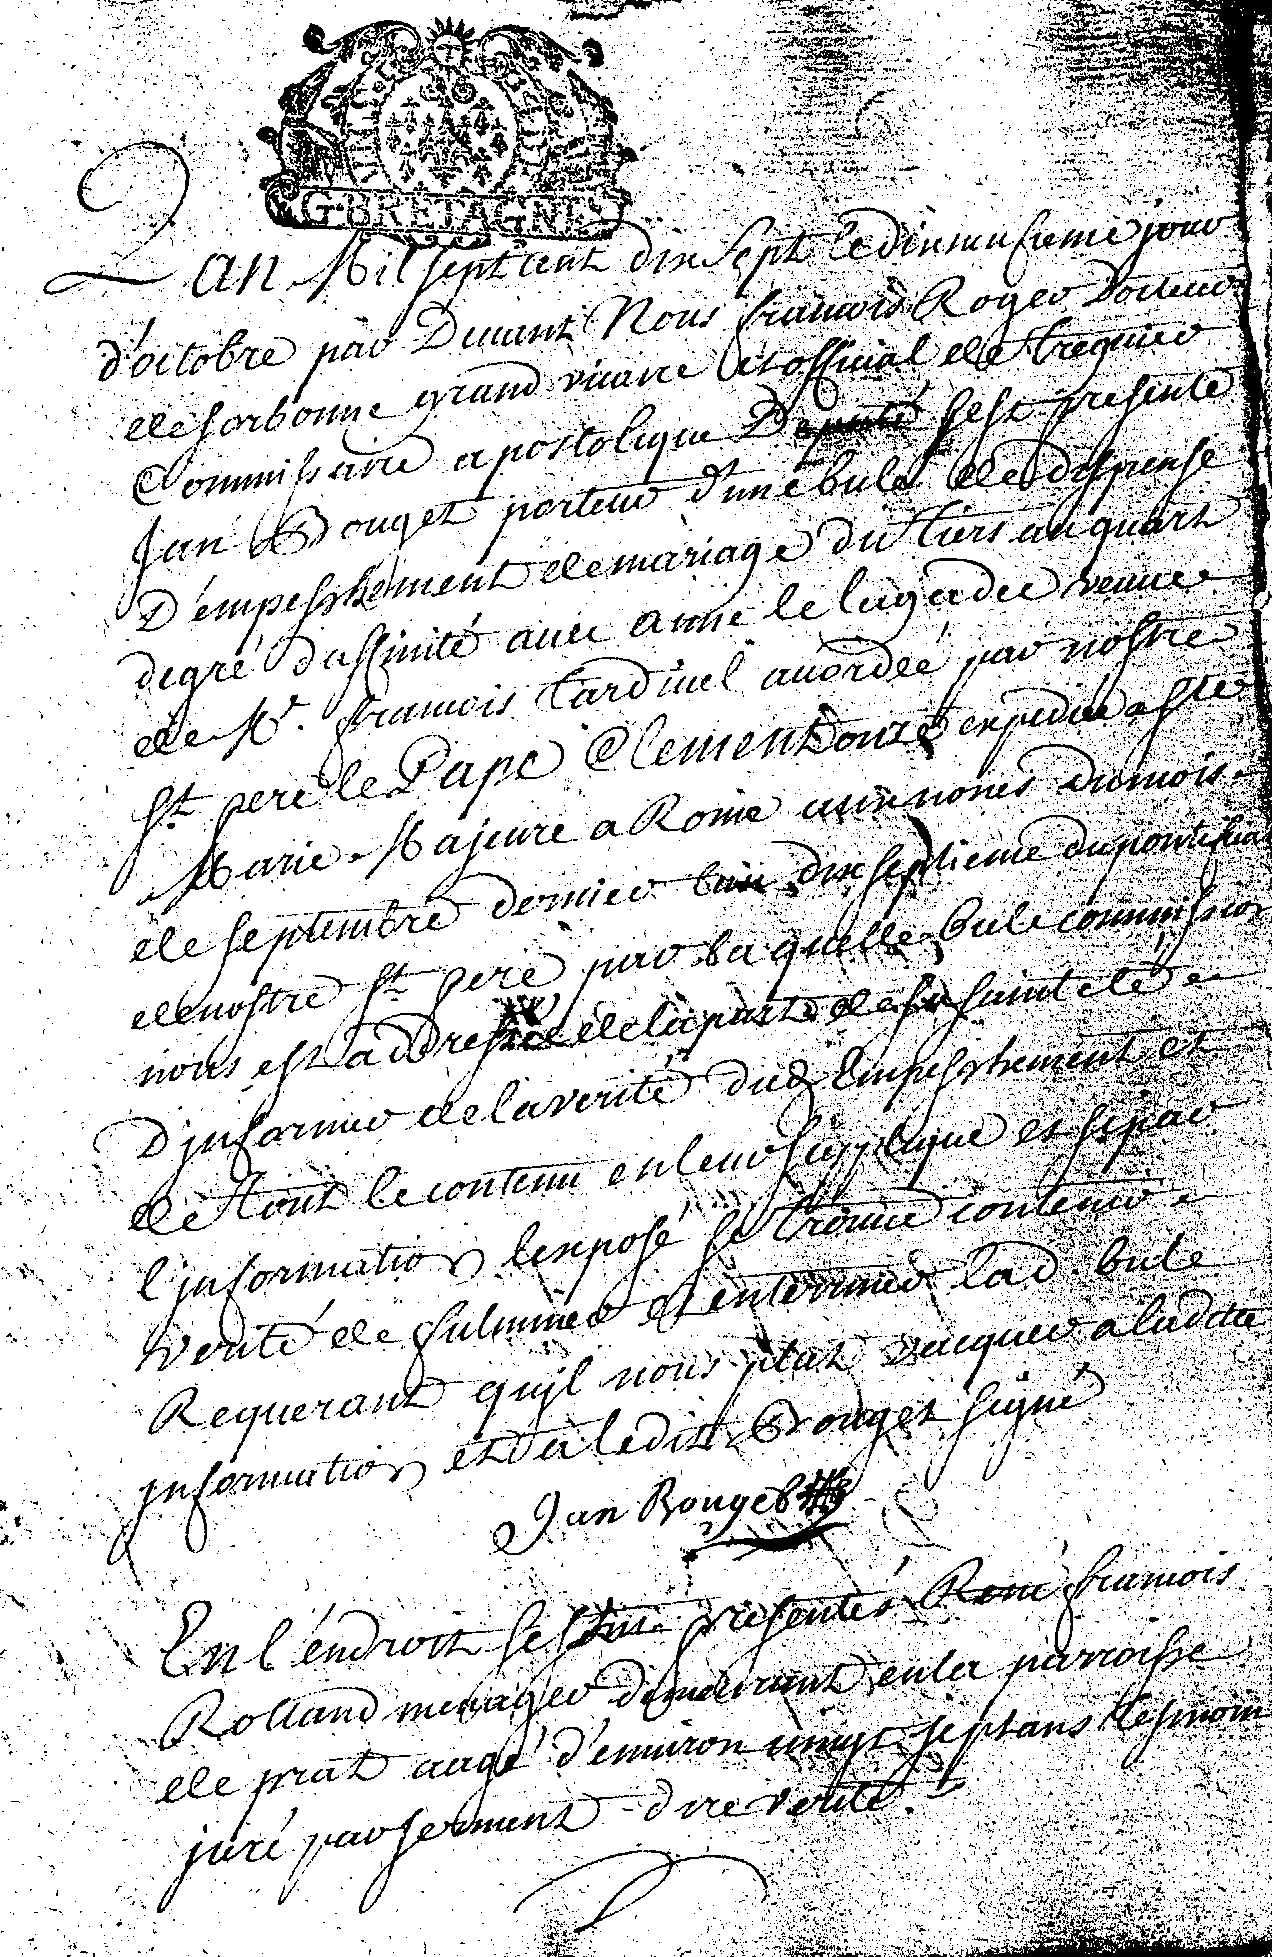 G. BRETAGNE
L'an Mil sept cent dix sept le dix neufieme jour
d'octobre par Devant Nous francois Roger Docteur
de sorbonne grand vicaire et official de treguier
Commissaire apostolique Deputé s'est presenté
Jan Bouget porteur d'une bule de dispense
D'empeschement de mariage du tiers au quart
degré d'affinité avec anne le lagadec veuve
de Mr. francois Cardinel accordée par nostre
st pere le Pape Clement onze expediée a ste
Marie Majeure a Rome aux nones du mois
de septembre dernier dix septieme du pontificat
de nostre st pere par laquelle bule commission
nous est addressée de la part de sa sainteté
D'jnformer de la verité dud Empeschement et
de tout le contenu en leur supplique et si par
l'jnformation l'exposé se trouve contenir
verité de fulminer et enteriner lad. bule
Requerant qu'jl nous plut vacquer a ladite
jnformation et a ledit Bouget signé
Jan Bouget
En l'éndroit s'est presenté René francois
Rolland menager demeurant en la parroisse
de prat aagé d'environ vingt sept ans tesmoin
juré par serment dire verité.